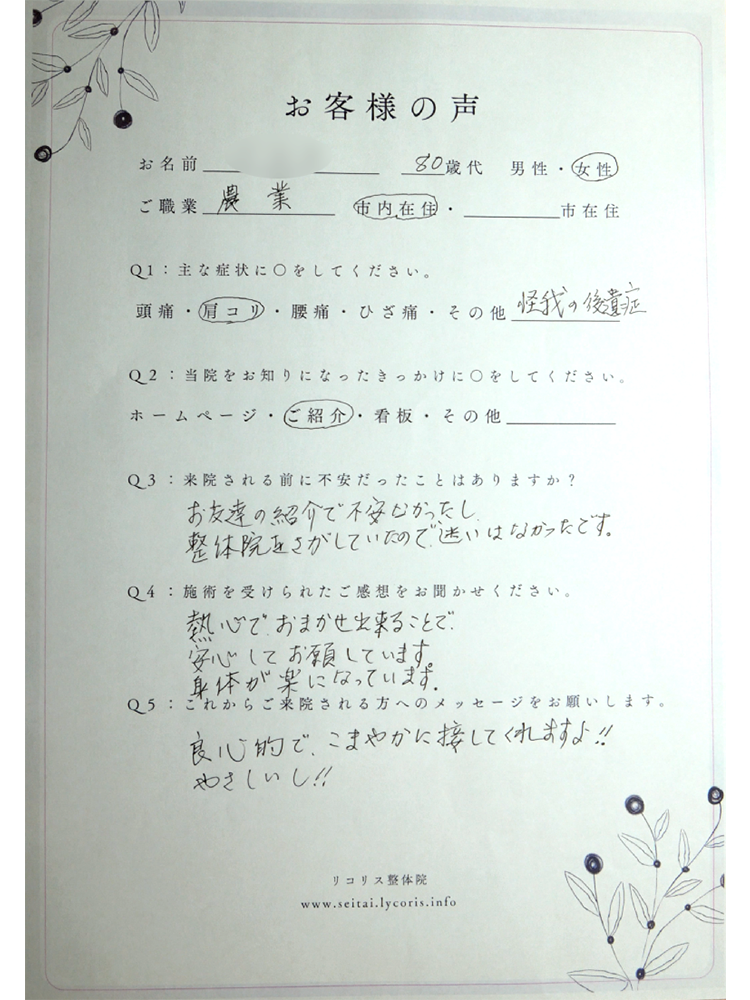 お客様の声
お名前 80歳代 男性・女性
ご職業 農業 市内在住・ 市在住
Q1：主な症状に〇をしてください。
頭痛・肩コリ・腰痛・ひざ痛・その他 怪我の後遺症
Q2：当院をお知りになったきっかけに〇をしてください。
ホームページ・ご紹介・看板・その他
Q3：来院される前に不安だったことはありますか？
お友達の紹介で不安なかったし
整体院をさがしていたので迷いはなかったです。
Q4：施術を受けられたご感想をお聞かせください。
熱心で、おまかせ出来ることで、
安心してお願しています。
身体が楽になっています。
Q5：これからご来院される方へのメッセージをお願いします。
良心的で、こまやかに接してくれますよ!!
やさしいし!!
リコリス整体院
www.seitai.lycoris.info